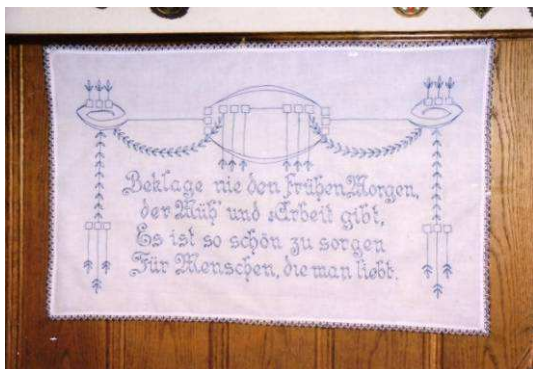 Beklage nie den frühen Morgen,
der Müh' und Arbeit gibt,
Es ist so schön zu sorgen
Für Menschen, die man liebt.